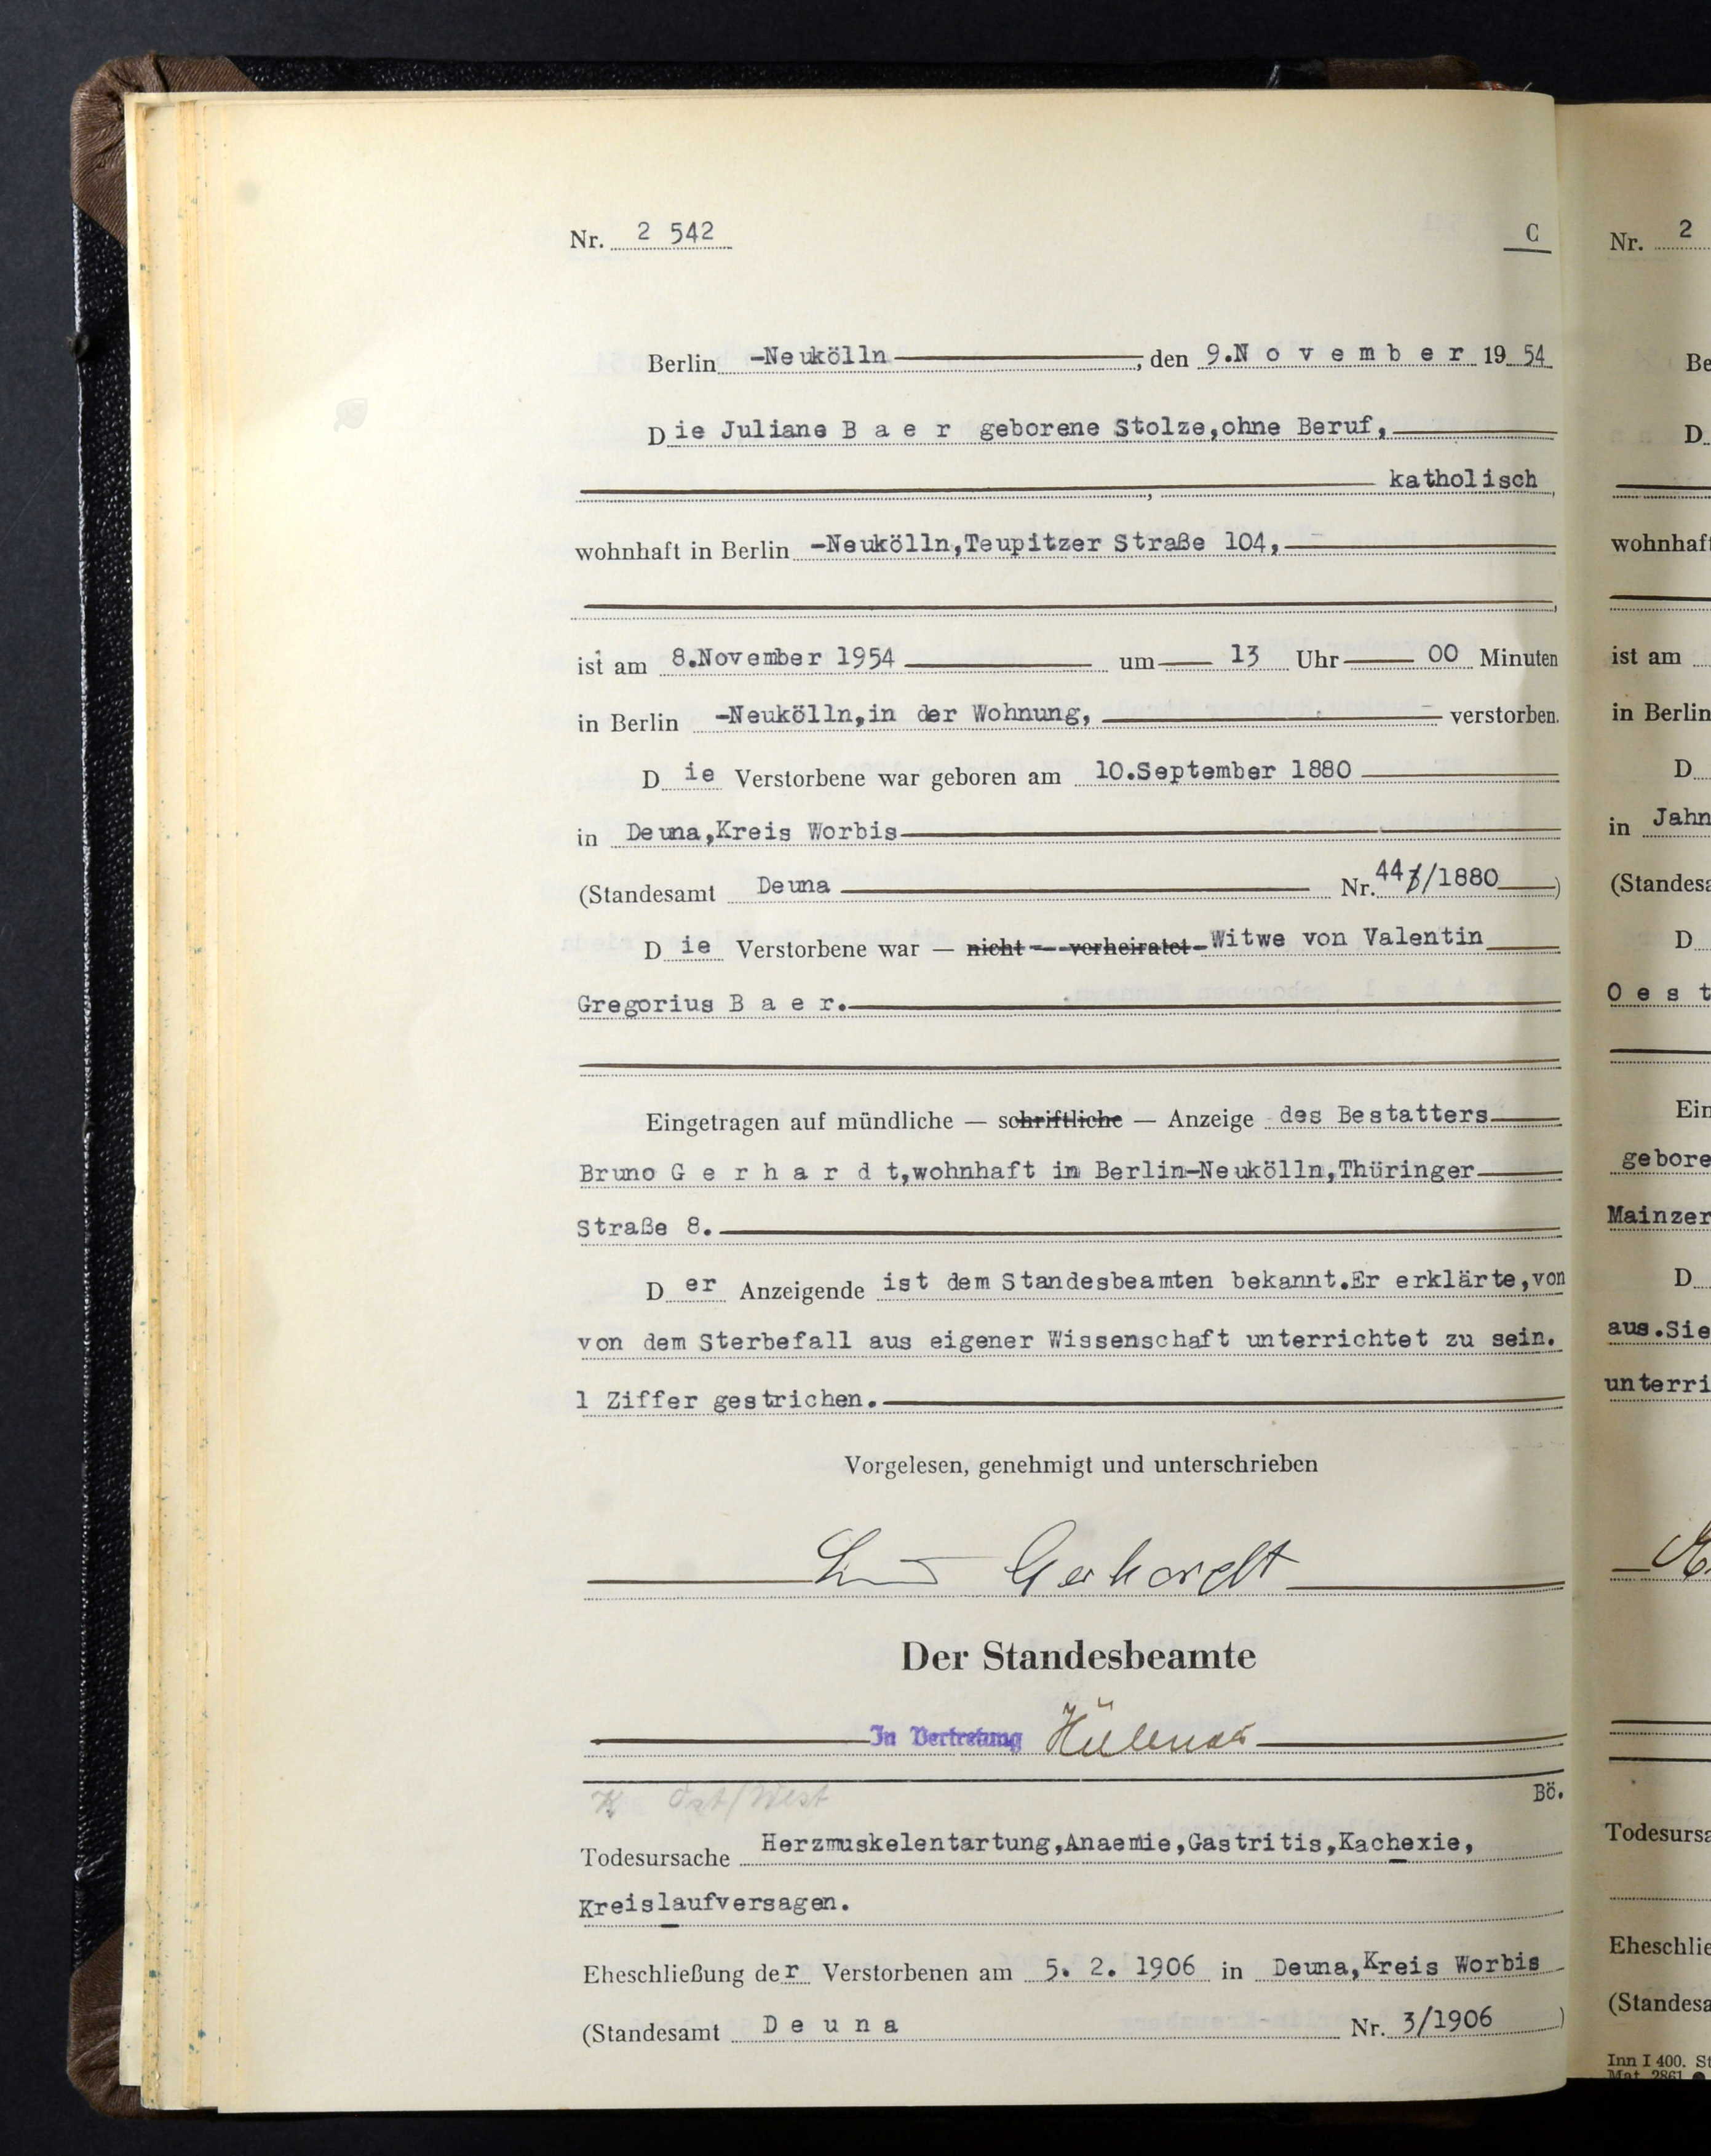 Nr. 2 542
C
Berlin -Neukölln, den 9.N o v e m b e r 19 54
Die Juliane B a e r geborene Stolze,ohne Beruf,
, katholisch,
wohnhaft in Berlin -Neukölln,Teupitzer Straße 104,
,
ist am 8.November 1954 um 13 Uhr 00 Minuten
in Berlin -Neukölln,in der Wohnung, verstorben.
Die Verstorbene war geboren am 10.September 1880
in Deuna,Kreis Worbis
(Standesamt Deuna Nr. 44/1880)
Die Verstorbene war — nicht — verheiratet - Witwe von Valentin
Gregorius B a e r.
Eingetragen auf mündliche — schriftliche — Anzeige des Bestatters
Bruno G e r h a r d t,wohnhaft in Berlin-Neukölln,Thüringer
Straße 8.
Der Anzeigende ist dem Standesbeamten bekannt.Er erklärte,von
von dem Sterbefall aus eigener Wissenschaft unterrichtet zu sein.
1 Ziffer gestrichen.
Vorgelesen, genehmigt und unterschrieben
Gerhardt
Der Standesbeamte
In Vertretung
K Ost/West
Bö.
Todesursache Herzmuskelentartung,Anaemie,Gastritis,Kachexie,
Kreislaufversagen.
Eheschließung der Verstorbenen am 5. 2. 1906 in Deuna,Kreis Worbis
(Standesamt D e u n a Nr. 3/1906)
Nr. 2
Be
D
wohnhaft
ist am
in Berlin
D
in Jahn
(Standesa
D
O e s t
Ein
gebore
Mainzer
D
aus.Sie
unterri
Todesursa
Eheschlie
(Standesa
Inn I 400. St
Mat. 2861